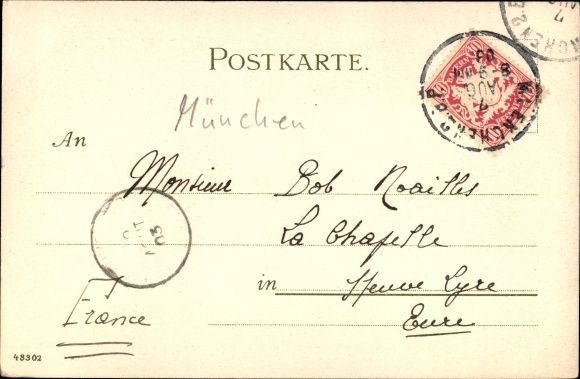 POSTKARTE.
München
An
Monsieur Bob Noailles
La Chapelle
in Neuve Lyre
Eure
France
MUENCHEN 2
7
AUG
03
AOUT
03
48302